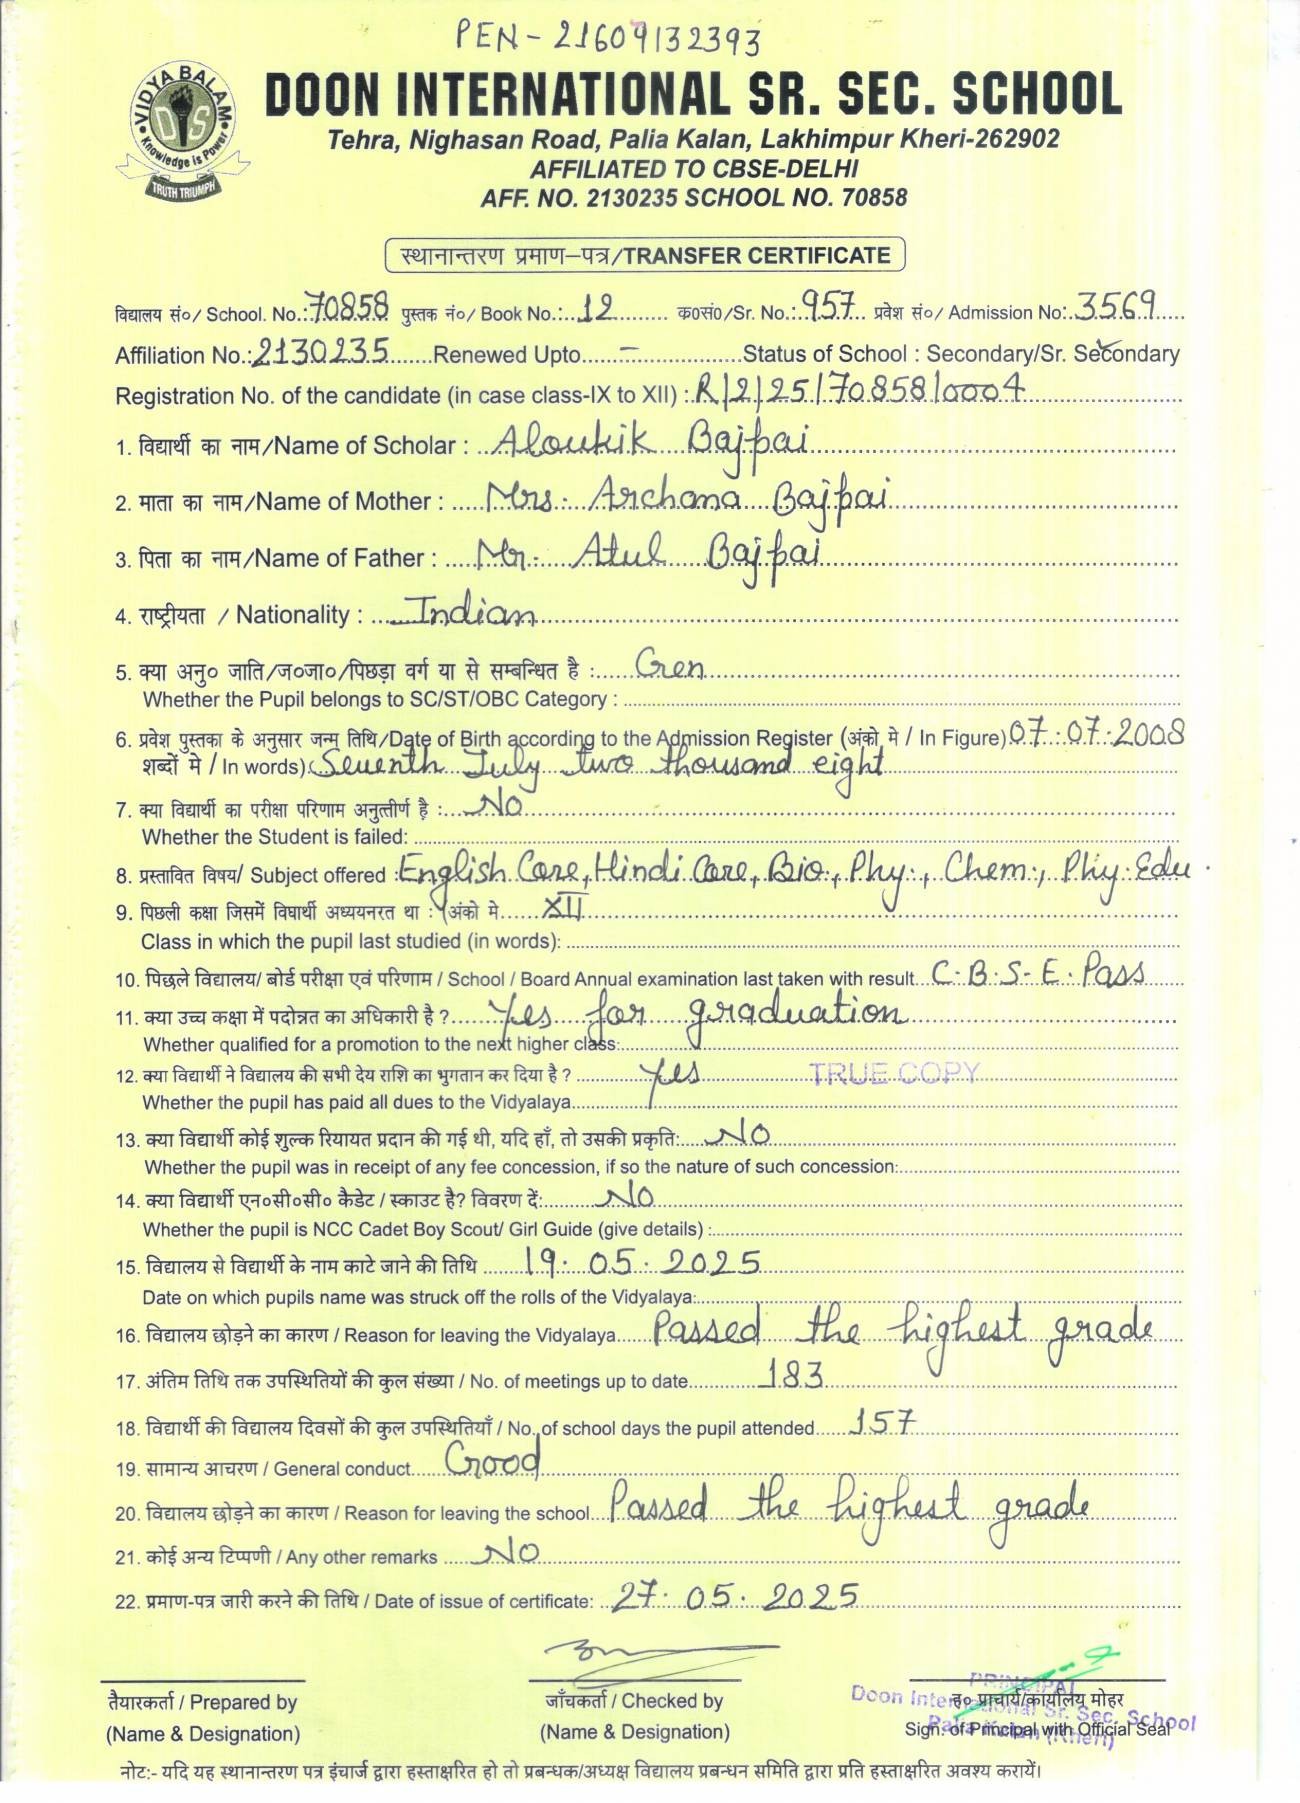 PEN - 21609132393
VIDYA BALAM
DIS
Knowledge is Power
TRUTH TRIUMPH
DOON INTERNATIONAL SR. SEC. SCHOOL
Tehra, Nighasan Road, Palia Kalan, Lakhimpur Kheri-262902
AFFILIATED TO CBSE-DELHI
AFF. NO. 2130235 SCHOOL NO. 70858
स्थानान्तरण प्रमाण–पत्र/TRANSFER CERTIFICATE
विद्यालय सं०/ School. No.: 70858 पुस्तक नं०/ Book No.: 12 क०सं०/Sr. No.: 957 प्रवेश सं०/ Admission No: 3569
Affiliation No.: 2130235 Renewed Upto - Status of School : Secondary/Sr. Secondary
Registration No. of the candidate (in case class-IX to XII) : R|2|25|70858|0004
1. विद्यार्थी का नाम/Name of Scholar : Aloukik Bajpai
2. माता का नाम/Name of Mother : Mrs. Archana Bajpai
3. पिता का नाम/Name of Father : Mr. Atul Bajpai
4. राष्ट्रीयता / Nationality : Indian
5. क्या अनु० जाति/ज०जा०/पिछड़ा वर्ग या से सम्बन्धित है : Gen
Whether the Pupil belongs to SC/ST/OBC Category :
6. प्रवेश पुस्तका के अनुसार जन्म तिथि/Date of Birth according to the Admission Register (अंको मे / In Figure) 07.07.2008
शब्दों मे / In words) Seventh July two thousand eight
7. क्या विद्यार्थी का परीक्षा परिणाम अनुत्तीर्ण है : No
Whether the Student is failed:
8. प्रस्तावित विषय/ Subject offered : English Core, Hindi Core, Bio., Phy., Chem., Phy. Edu.
9. पिछली कक्षा जिसमें विघार्थी अध्ययनरत था : (अंको मे XII
Class in which the pupil last studied (in words):
10. पिछले विद्यालय/ बोर्ड परीक्षा एवं परिणाम / School / Board Annual examination last taken with result C.B.S.E. Pass
11. क्या उच्च कक्षा में पदोन्नत का अधिकारी है ? Yes for graduation
Whether qualified for a promotion to the next higher class:
12. क्या विद्यार्थी ने विद्यालय की सभी देय राशि का भुगतान कर दिया है ? Yes TRUE COPY
Whether the pupil has paid all dues to the Vidyalaya
13. क्या विद्यार्थी कोई शुल्क रियायत प्रदान की गई थी, यदि हाँ, तो उसकी प्रकृति: No
Whether the pupil was in receipt of any fee concession, if so the nature of such concession:
14. क्या विद्यार्थी एन०सी०सी० कैडेट / स्काउट है? विवरण दें: No
Whether the pupil is NCC Cadet Boy Scout/ Girl Guide (give details) :
15. विद्यालय से विद्यार्थी के नाम काटे जाने की तिथि 19.05.2025
Date on which pupils name was struck off the rolls of the Vidyalaya:
16. विद्यालय छोड़ने का कारण / Reason for leaving the Vidyalaya Passed the highest grade
17. अंतिम तिथि तक उपस्थितियों की कुल संख्या / No. of meetings up to date 183
18. विद्यार्थी की विद्यालय दिवसों की कुल उपस्थितियाँ / No. of school days the pupil attended 157
19. सामान्य आचरण / General conduct Good
20. विद्यालय छोड़ने का कारण / Reason for leaving the school Passed the highest grade
21. कोई अन्य टिप्पणी / Any other remarks No
22. प्रमाण-पत्र जारी करने की तिथि / Date of issue of certificate: 27.05.2025
तैयारकर्ता / Prepared by
(Name & Designation)
जाँचकर्ता / Checked by
(Name & Designation)
PRINCIPAL
Doon International Sr. Sec. School
Palia Kalan (Kheri)
ह० प्राचार्य/कार्यालय मोहर
Sign. of Principal with Official Seal
नोट:- यदि यह स्थानान्तरण पत्र इंचार्ज द्वारा हस्ताक्षरित हो तो प्रबन्धक/अध्यक्ष विद्यालय प्रबन्धन समिति द्वारा प्रति हस्ताक्षरित अवश्य करायें।